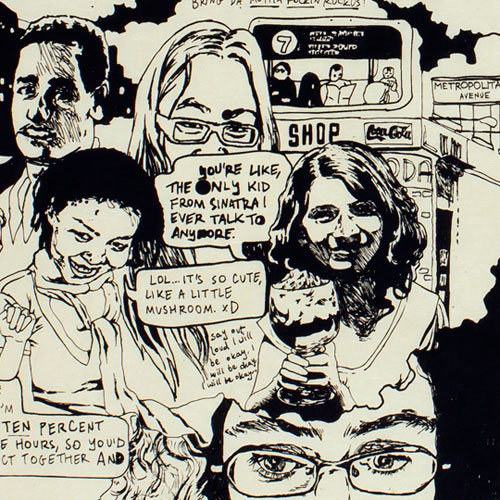 BRING DA MOTHA FUCKIN RUCKUS!
7
METROPOLITA
AVENUE
SHOP
Coca-Cola
ODA
YOU'RE LIKE,
THE ONLY KID
FROM SINATRA I
EVER TALK TO
ANYMORE.
LOL...IT'S SO CUTE,
LIKE A LITTLE
MUSHROOM. XD
say out
loud I will
be okay.
will be okay
will be okay
'M
TEN PERCENT
E HOURS, SO YOU'D
CT TOGETHER AND